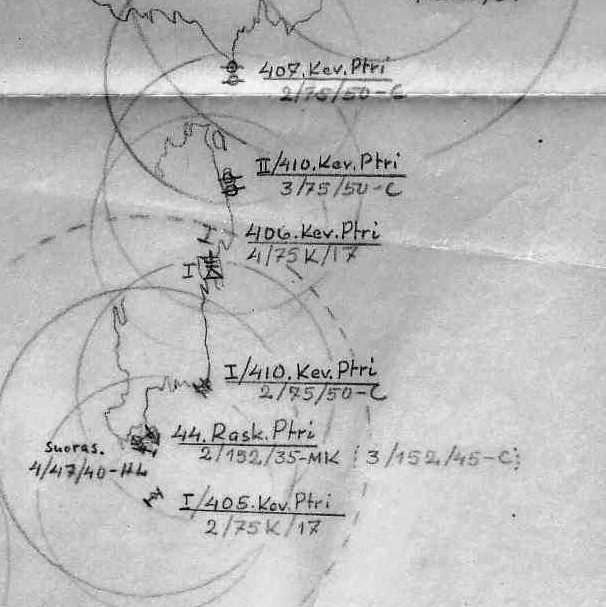 407.Kev.Ptri
2/75/50-C
II/410.Kev.Ptri
3/75/50-C
406.Kev.Ptri
4/75K/17
I
I/410.Kev.Ptri
2/75/50-C
44.Rask.Ptri
2/152/35-MK ; 3/152/45-C;
Suoras.
4/47/40-HL
I/405.Kev.Ptri
2/75K/17